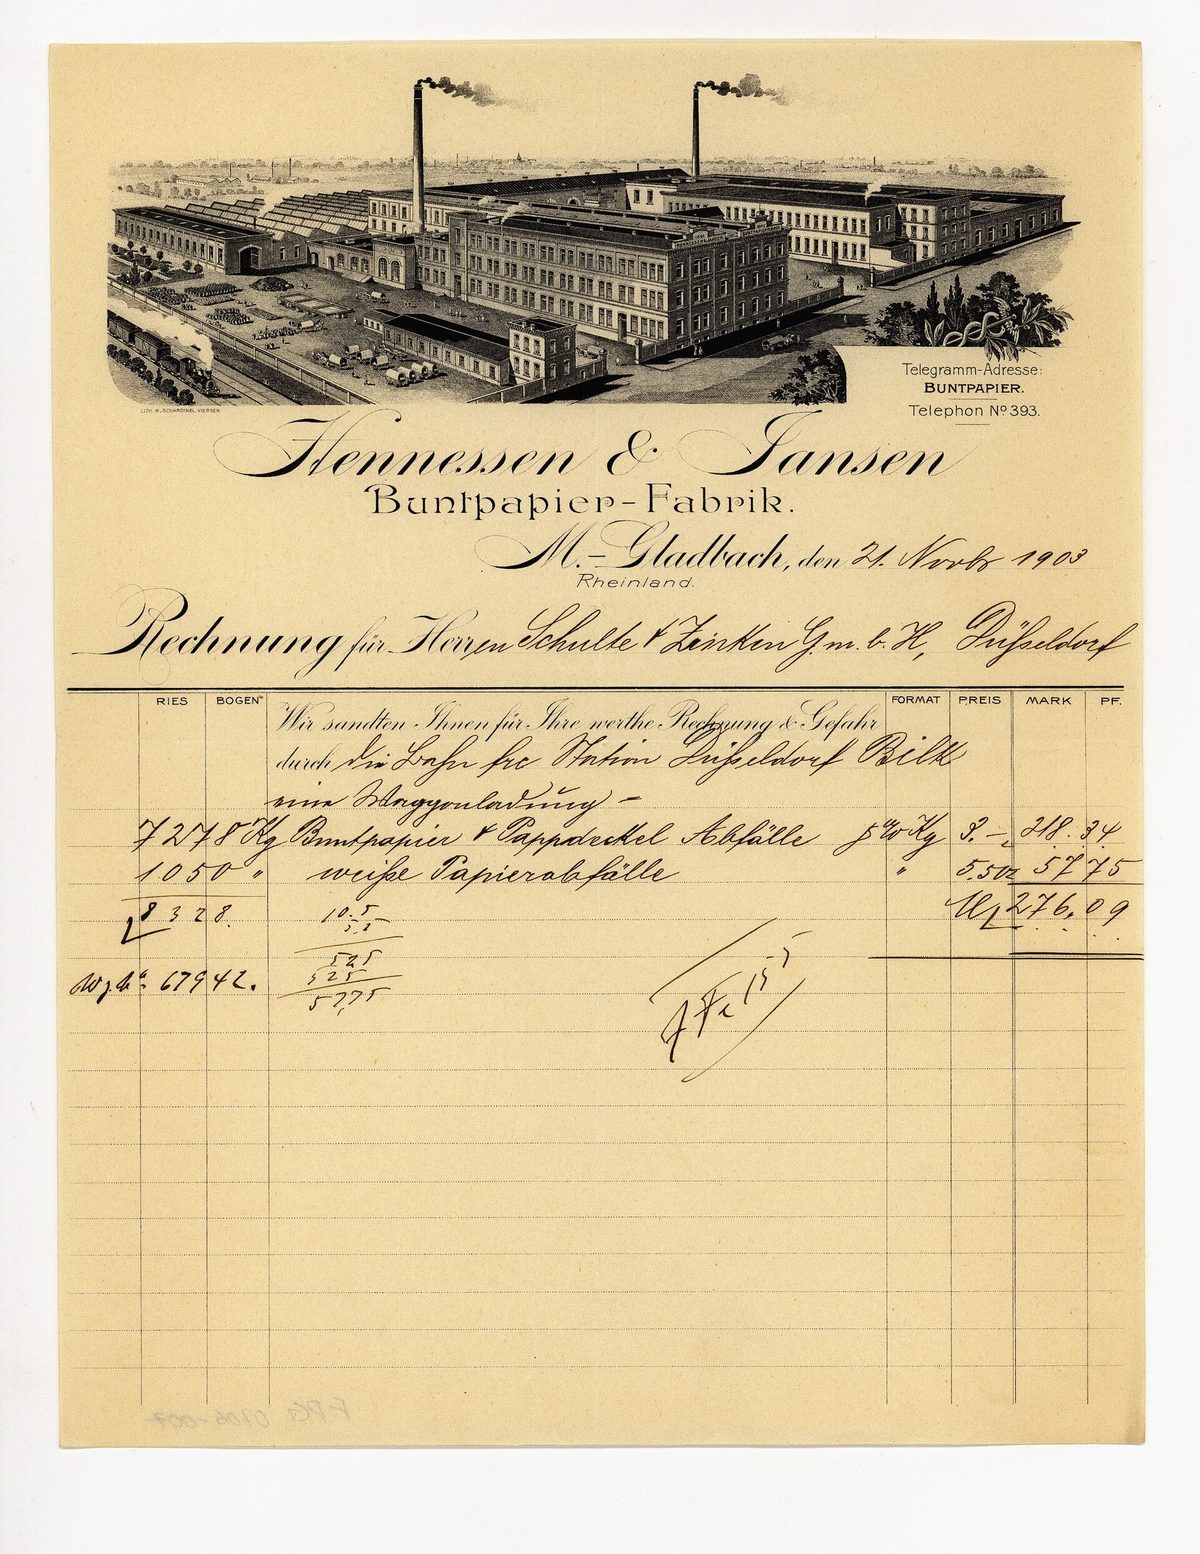 LITH. R. SCHARDINEL, VIERSEN
Telegramm-Adresse:
BUNTPAPIER.
Telephon No 393.
Hennessen & Jansen
Buntpapier-Fabrik.
M.-Gladbach, den 21. Novbr 1903
Rheinland.
Rechnung für Herren Schulte & Zinken G.m.b.H, Düsseldorf
RIES BOGEN FORMAT PREIS MARK PF.
Wir sandten Ihnen für Ihre werthe Rechnung & Gefahr
durch die Bahn frc Station Düsseldorf Bilk
eine Waggonladung –
7278 Kg Buntpapier & Pappdeckel Abfälle p % Kg 3.– 218.34
1050 " weiße Papierabfälle " 5.50 57 75
8328. M 276.09
10.5
5.5
525
525
5775
67942.